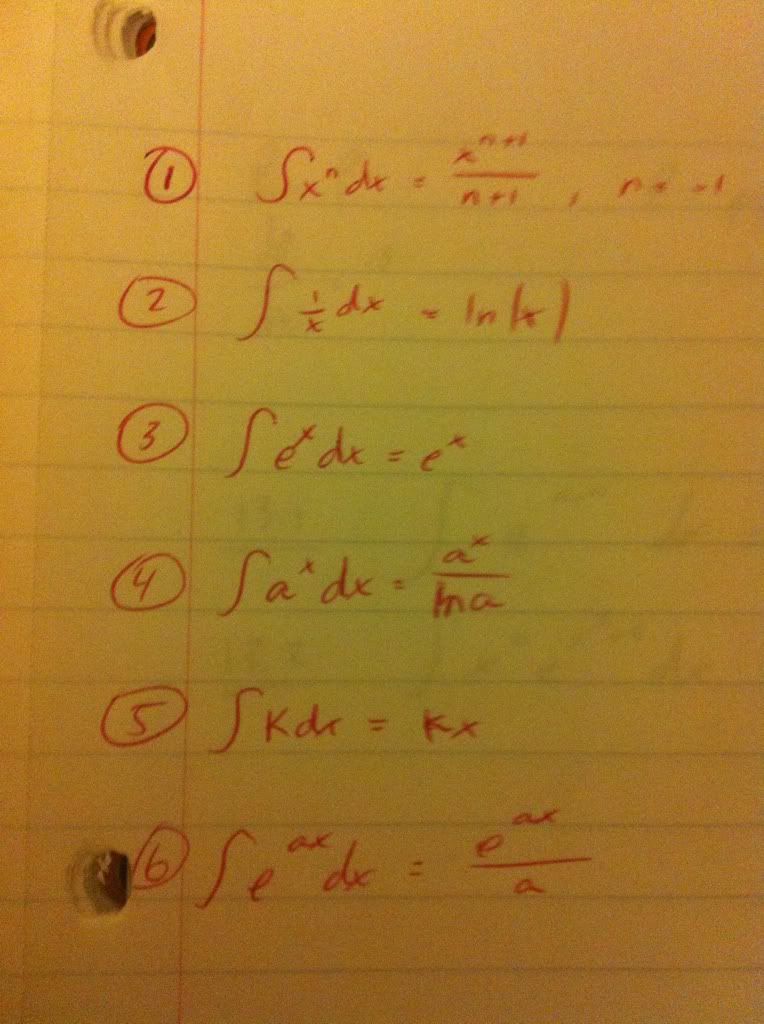 ① ∫xⁿ dx = xⁿ⁺¹/(n+1), n ≠ -1
② ∫ 1/x dx = ln|x|
③ ∫ eˣ dx = eˣ
④ ∫ aˣ dx = aˣ/ln a
⑤ ∫ K dx = Kx
⑥ ∫ eᵃˣ dx = eᵃˣ/a